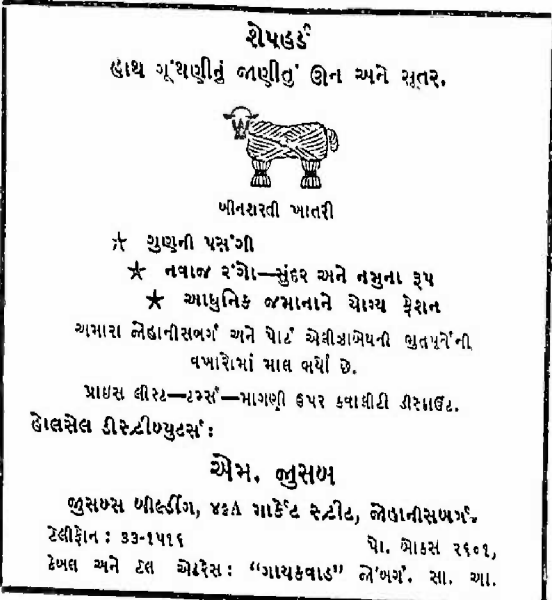 શેપહર્ડ
હાથ ગૂંથણીનું જાણીતું ઊન અને સૂતર.
બીનશરતી ખાતરી
☆ ગુણની પસંગી
★ નવાજ રંગો—સુંદર અને નમુના રૂપ
★ આધુનિક જમાનાને યોગ્ય ફેશન
અમારા જોહાનીસબર્ગ અને પોર્ટ એલીઝાબેથની
વખારોમાં માલ ભર્યો છે.
પ્રાઇસ લીસ્ટ—ટર્મ્સ—માગણી ઉપર કવાલીટી ડીસ્કાઉંટ.
હોલસેલ ડીસ્ટ્રીબ્યુટર્સ :
એમ. જુસબ
જુસબ્સ બીલ્ડીંગ, ૪૨A માર્કેટ સ્ટ્રીટ, જોહાનીસબર્ગ.
ટેલીફોન : ૩૩-૧૫૧૬ પો. બોકસ ૨૬૦૧,
કેબલ અને ટેલ એડ્રેસ : “ગાયકવાડ” જો'બર્ગ. સા. આ.